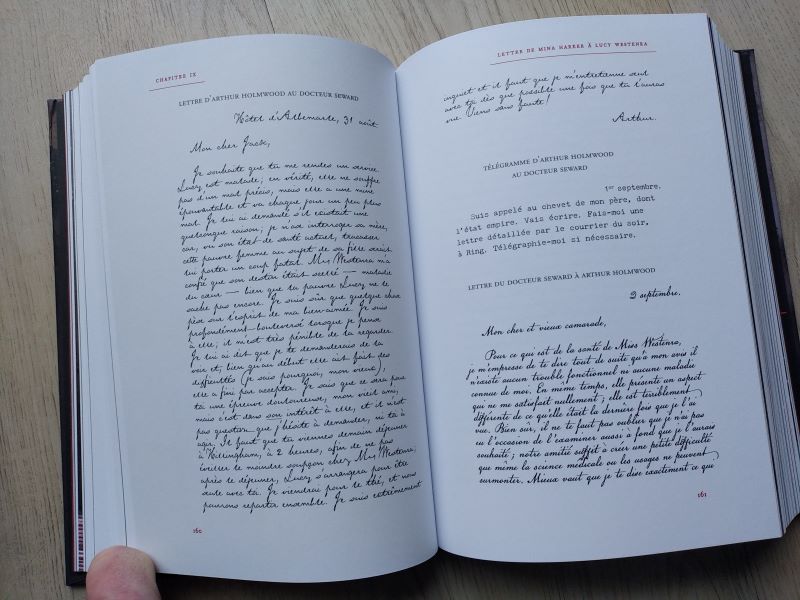 CHAPITRE IX
LETTRE D'ARTHUR HOLMWOOD AU DOCTEUR SEWARD
Hôtel d'Albemarle, 31 août
Mon cher Jack,
Je souhaite que tu me rendes un service.
Lucy est malade; en vérité, elle ne souffre
pas d'un mal précis, mais elle a une mine
épouvantable et va chaque jour un peu plus
mal. Je lui ai demandé s'il existait une
quelconque raison; je n'ose interroger sa mère,
car, vu son état de santé actuel, tracasser
cette pauvre femme au sujet de sa fille serait
lui porter un coup fatal. Mrs Westenra m'a
confié que son destin était scellé — maladie
du cœur — bien que la pauvre Lucy ne le
sache pas encore. Je suis sûr que quelque chose
pèse sur l'esprit de ma bien-aimée. Je suis
profondément bouleversé lorsque je pense
à elle; il m'est très pénible de la regarder.
Je lui ai dit que je te demanderais de la
voir et, bien qu'au début elle ait fait des
difficultés (je sais pourquoi, mon vieux),
elle a fini par accepter. Je sais que ce sera pour
toi une épreuve douloureuse, mon vieil ami,
mais c'est dans son intérêt à elle, et il n'est
pas question que j'hésite à demander, ni toi à
agir. Il faut que tu viennes demain déjeuner
à Hillingham, à 2 heures, afin de ne pas
éveiller le moindre soupçon chez Mrs Westenra;
après le déjeuner, Lucy s'arrangera pour être
seule avec toi. Je viendrai pour le thé, et nous
pourrons repartir ensemble. Je suis extrêmement
160
LETTER DE MINA HARKER À LUCY WESTENRA
inquiet et il faut que je m'entretienne seul
avec toi dès que possible une fois que tu l'auras
vue. Viens sans faute!
Arthur.
TÉLÉGRAMME D'ARTHUR HOLMWOOD
AU DOCTEUR SEWARD
1er septembre.
Suis appelé au chevet de mon père, dont
l'état empire. Vais écrire. Fais-moi une
lettre détaillée par le courrier du soir,
à Ring. Télégraphie-moi si nécessaire.
LETTRE DU DOCTEUR SEWARD À ARTHUR HOLMWOOD
2 septembre.
Mon cher et vieux camarade,
Pour ce qui est de la santé de Miss Westenra,
je m'empresse de te dire tout de suite qu'à mon avis il
n'existe aucun trouble fonctionnel ni aucune maladie
connue de moi. En même temps, elle présente un aspect
qui ne me satisfait nullement; elle est terriblement
différente de ce qu'elle était la dernière fois que je l'ai
vue. Bien sûr, il ne te faut pas oublier que je n'ai pas
eu l'occasion de l'examiner aussi à fond que je l'aurais
souhaité; notre amitié suffit à créer une petite difficulté
que même la science médicale ou les usages ne peuvent
surmonter. Mieux vaut que je te dise exactement ce qui
161